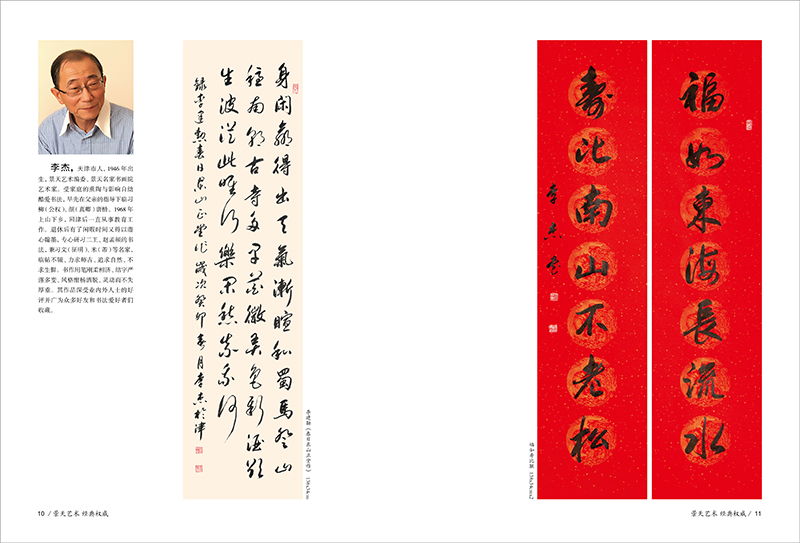 李杰，天津市人，1946年出
生，景天艺术编委、景天名家书画院
艺术家。受家庭的熏陶与影响自幼
酷爱书法，早先在父亲的指导下临习
柳（公权）、颜（真卿）唐楷。1968年
上山下乡，回津后一直从事教育工
作。退休后有了闲暇时间又得以潜心
翰墨，专心研习二王、赵孟頫的书
法，兼习文（征明）、米（芾）等名家，
临帖不辍，力求师古，追求自然、不
求生僻。书作用笔刚柔相济，结字严
谨多变，风格恬畅洒脱，灵动而不失
厚重。其作品深受业内外人士的好
评并广为众多好友和书法爱好者们
收藏。
身閑贏得出天氣漸暄和蜀馬登山
穩南朝古寺多早花微弄色新酒欲
生波從此唯行樂閑愁奈我何
録李建勲春日東山正堂作 歲次癸卯春月李杰於津
李建勋《春日东山正堂作》 136x34cm
福如東海長流水
壽比南山不老松
李杰書
福如寿比联 136x34cmx2
10 / 景天艺术 经典权威
景天艺术 经典权威 / 11